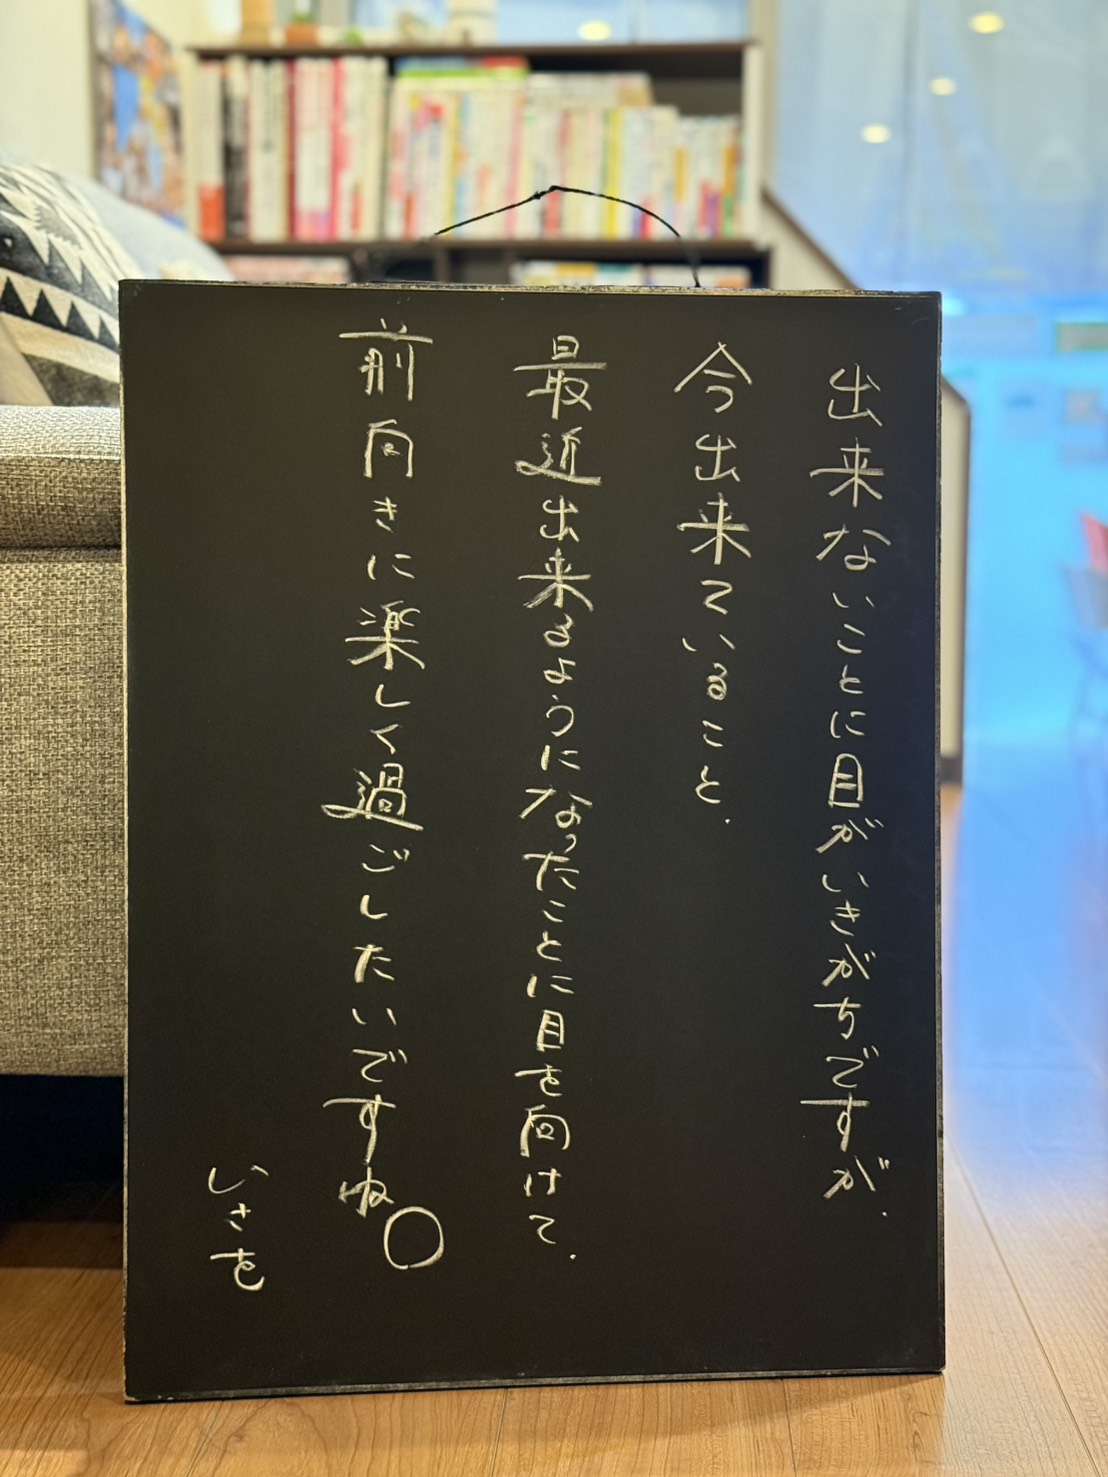 出来ないことに目がいきがちですが、
今出来ていること、
最近出来るようになったことに目を向けて、
前向きに楽しく過ごしたいですね。
いさを